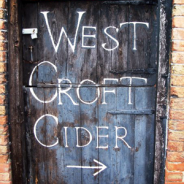 WEST
CROFT
CIDER
→